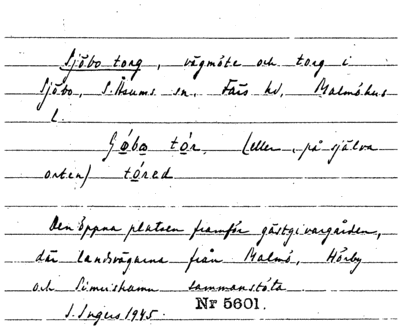 Sjöbo torg, vägmöte och torg i
Sjöbo, S. Åsums sn, Färs hd, Malmöhus
l.
tór. (eller, på själva
orten) tóred
Den öppna platsen framför gästgivargården,
där landsvägarna från Malmö, Hörby
och Simrishamn sammanstöta
I. Ingers 1945. Nr 5601.